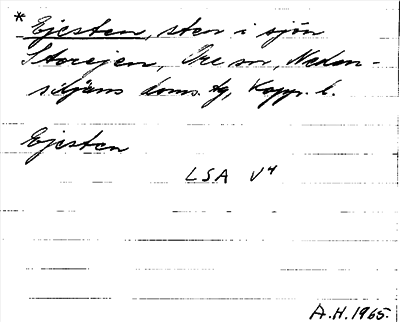 * Ejesten, sten i sjön
Storejen, Ore sn, Neden-
siljans doms. tg, Kopp. l.
Ejesten
LSA V4
A.H. 1965.